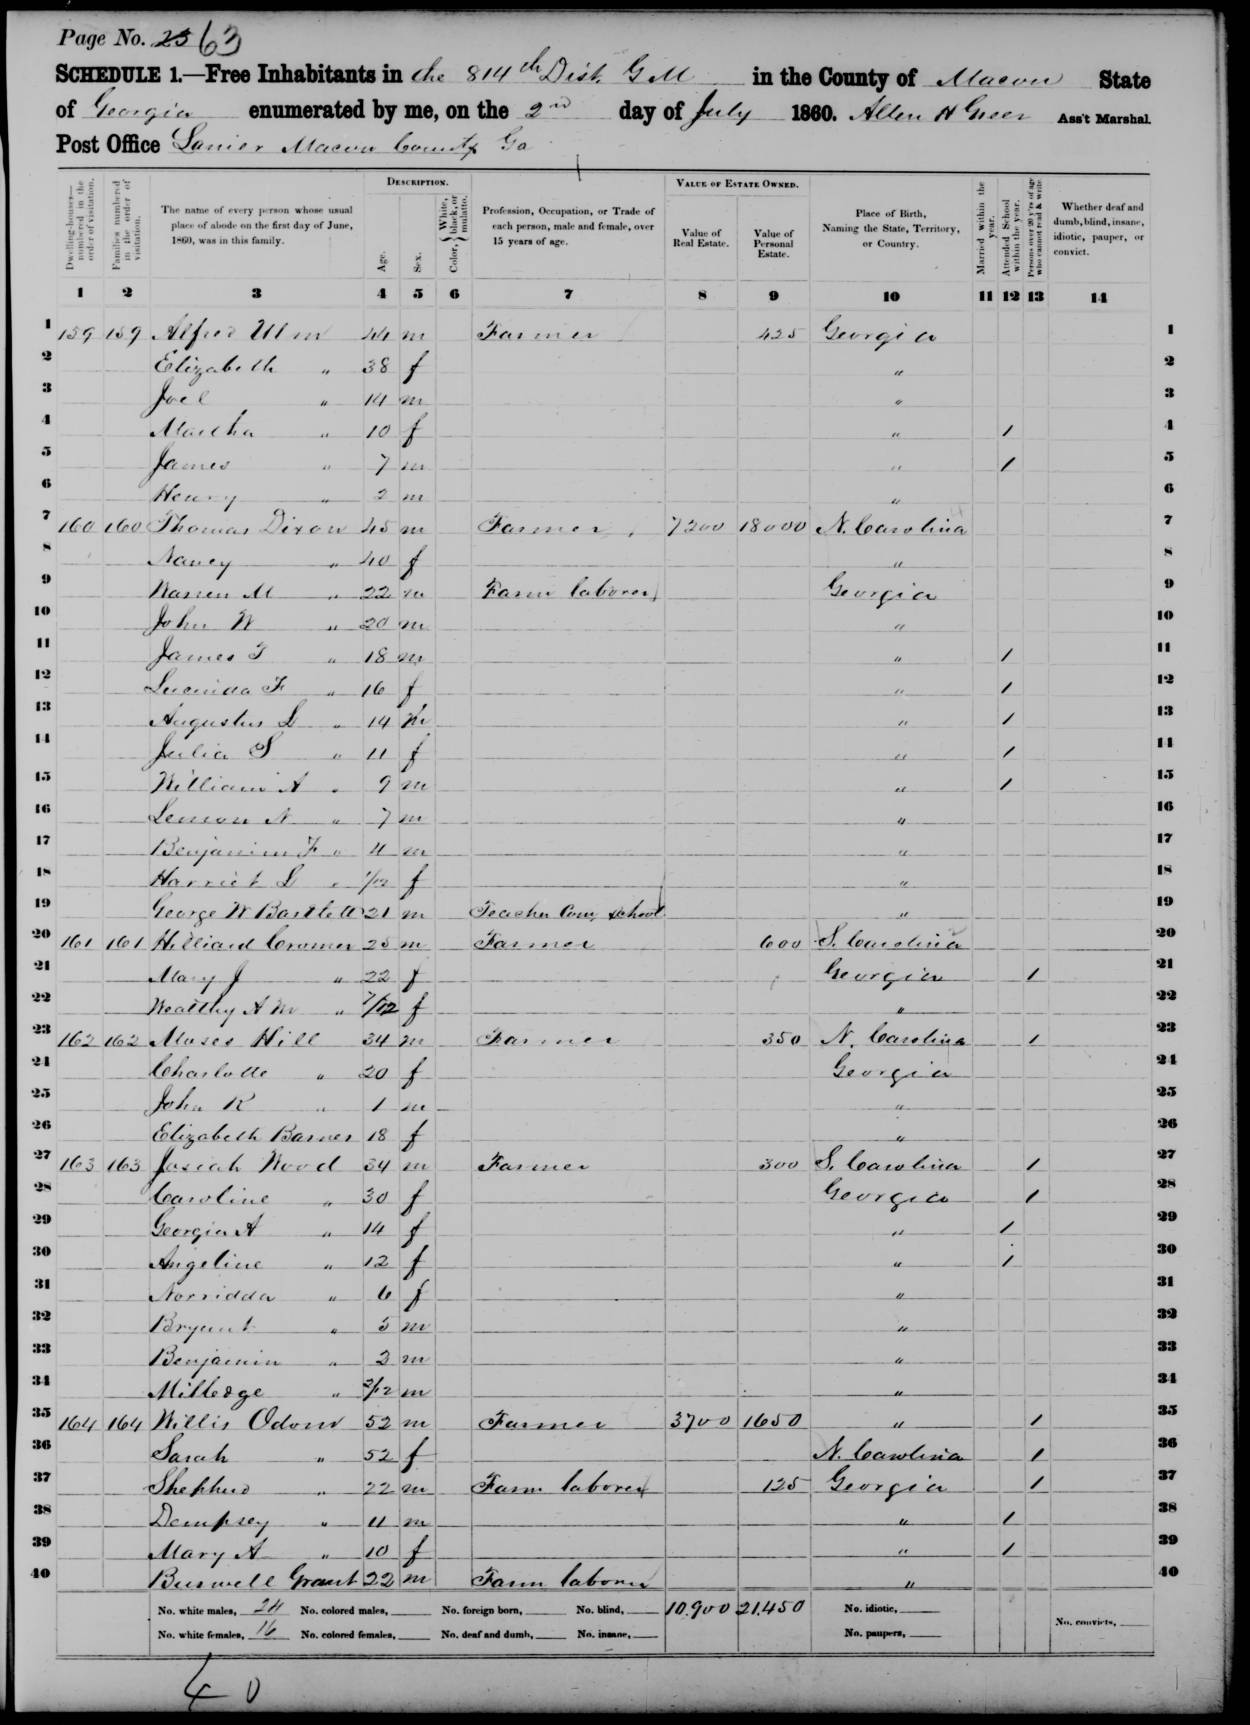 Page No. 23 63
SCHEDULE 1.—Free Inhabitants in the 814th Dist. G M in the County of Macon State
of Georgia enumerated by me, on the 2nd day of July 1860. Allen H Greer Ass't Marshal.
Post Office Lanier Macon County Ga
Dwelling-houses—numbered in the order of visitation.
Families numbered in the order of visitation.
The name of every person whose usual place of abode on the first day of June, 1860, was in this family.
DESCRIPTION.
Age.
Sex.
Color, { White, black, or mulatto.
Profession, Occupation, or Trade of each person, male and female, over 15 years of age.
VALUE OF ESTATE OWNED.
Value of Real Estate.
Value of Personal Estate.
Place of Birth, Naming the State, Territory, or Country.
Married within the year.
Attended School within the year.
Persons over 20 y'rs of age who cannot read & write.
Whether deaf and dumb, blind, insane, idiotic, pauper, or convict.
1 2 3 4 5 6 7 8 9 10 11 12 13 14
1 159 159 Alfred Ulm 44 m Farmer 425 Georgia 1
2 Elizabeth " 38 f " 2
3 Joel " 14 m " 3
4 Martha " 10 f " / 4
5 James " 7 m " / 5
6 Henry " 2 m " 6
7 160 160 Thomas Dixon 45 m Farmer 7200 18000 N. Carolina 7
8 Nancy " 40 f " 8
9 Warren M " 22 m Farm laborer Georgia 9
10 John W " 20 m " 10
11 James T " 18 m " / 11
12 Lucinda F " 16 f " / 12
13 Augustus L " 14 m " / 13
14 Julia S " 11 f " / 14
15 William A " 9 m " / 15
16 Lemon N " 7 m " 16
17 Benjamin F " 4 m " 17
18 Harriet L " 1/12 f " 18
19 George W Bartlett 21 m Teacher Com School " 19
20 161 161 Hilliard Cromer 25 m Farmer 600 S. Carolina 20
21 Mary J " 22 f Georgia / 21
22 Wealthy A M " 7/12 f " 22
23 162 162 Moses Hill 34 m Farmer 350 N. Carolina / 23
24 Charlotte " 20 f Georgia 24
25 John R " 1 m " 25
26 Elizabeth Barnes 18 f " 26
27 163 163 Josiah Wood 34 m Farmer 300 S. Carolina / 27
28 Caroline " 30 f Georgia / 28
29 Georgia A " 14 f " / 29
30 Angeline " 12 f " / 30
31 Norridda " 6 f " 31
32 Bryant " 5 m " 32
33 Benjamin " 3 m " 33
34 Milledge " 2/12 m " 34
35 164 164 Willis Odom 52 m Farmer 3700 1650 " / 35
36 Sarah " 52 f N. Carolina / 36
37 Shephard " 22 m Farm laborer 125 Georgia / 37
38 Dempsey " 11 m " / 38
39 Mary A " 10 f " / 39
40 Burwell Grant 22 m Farm laborer " 40
No. white males, 24 No. colored males, No. foreign born, No. blind, 10,900 21,450 No. idiotic, No. convicts,
No. white females, 16 No. colored females, No. deaf and dumb, No. insane, No. paupers,
40